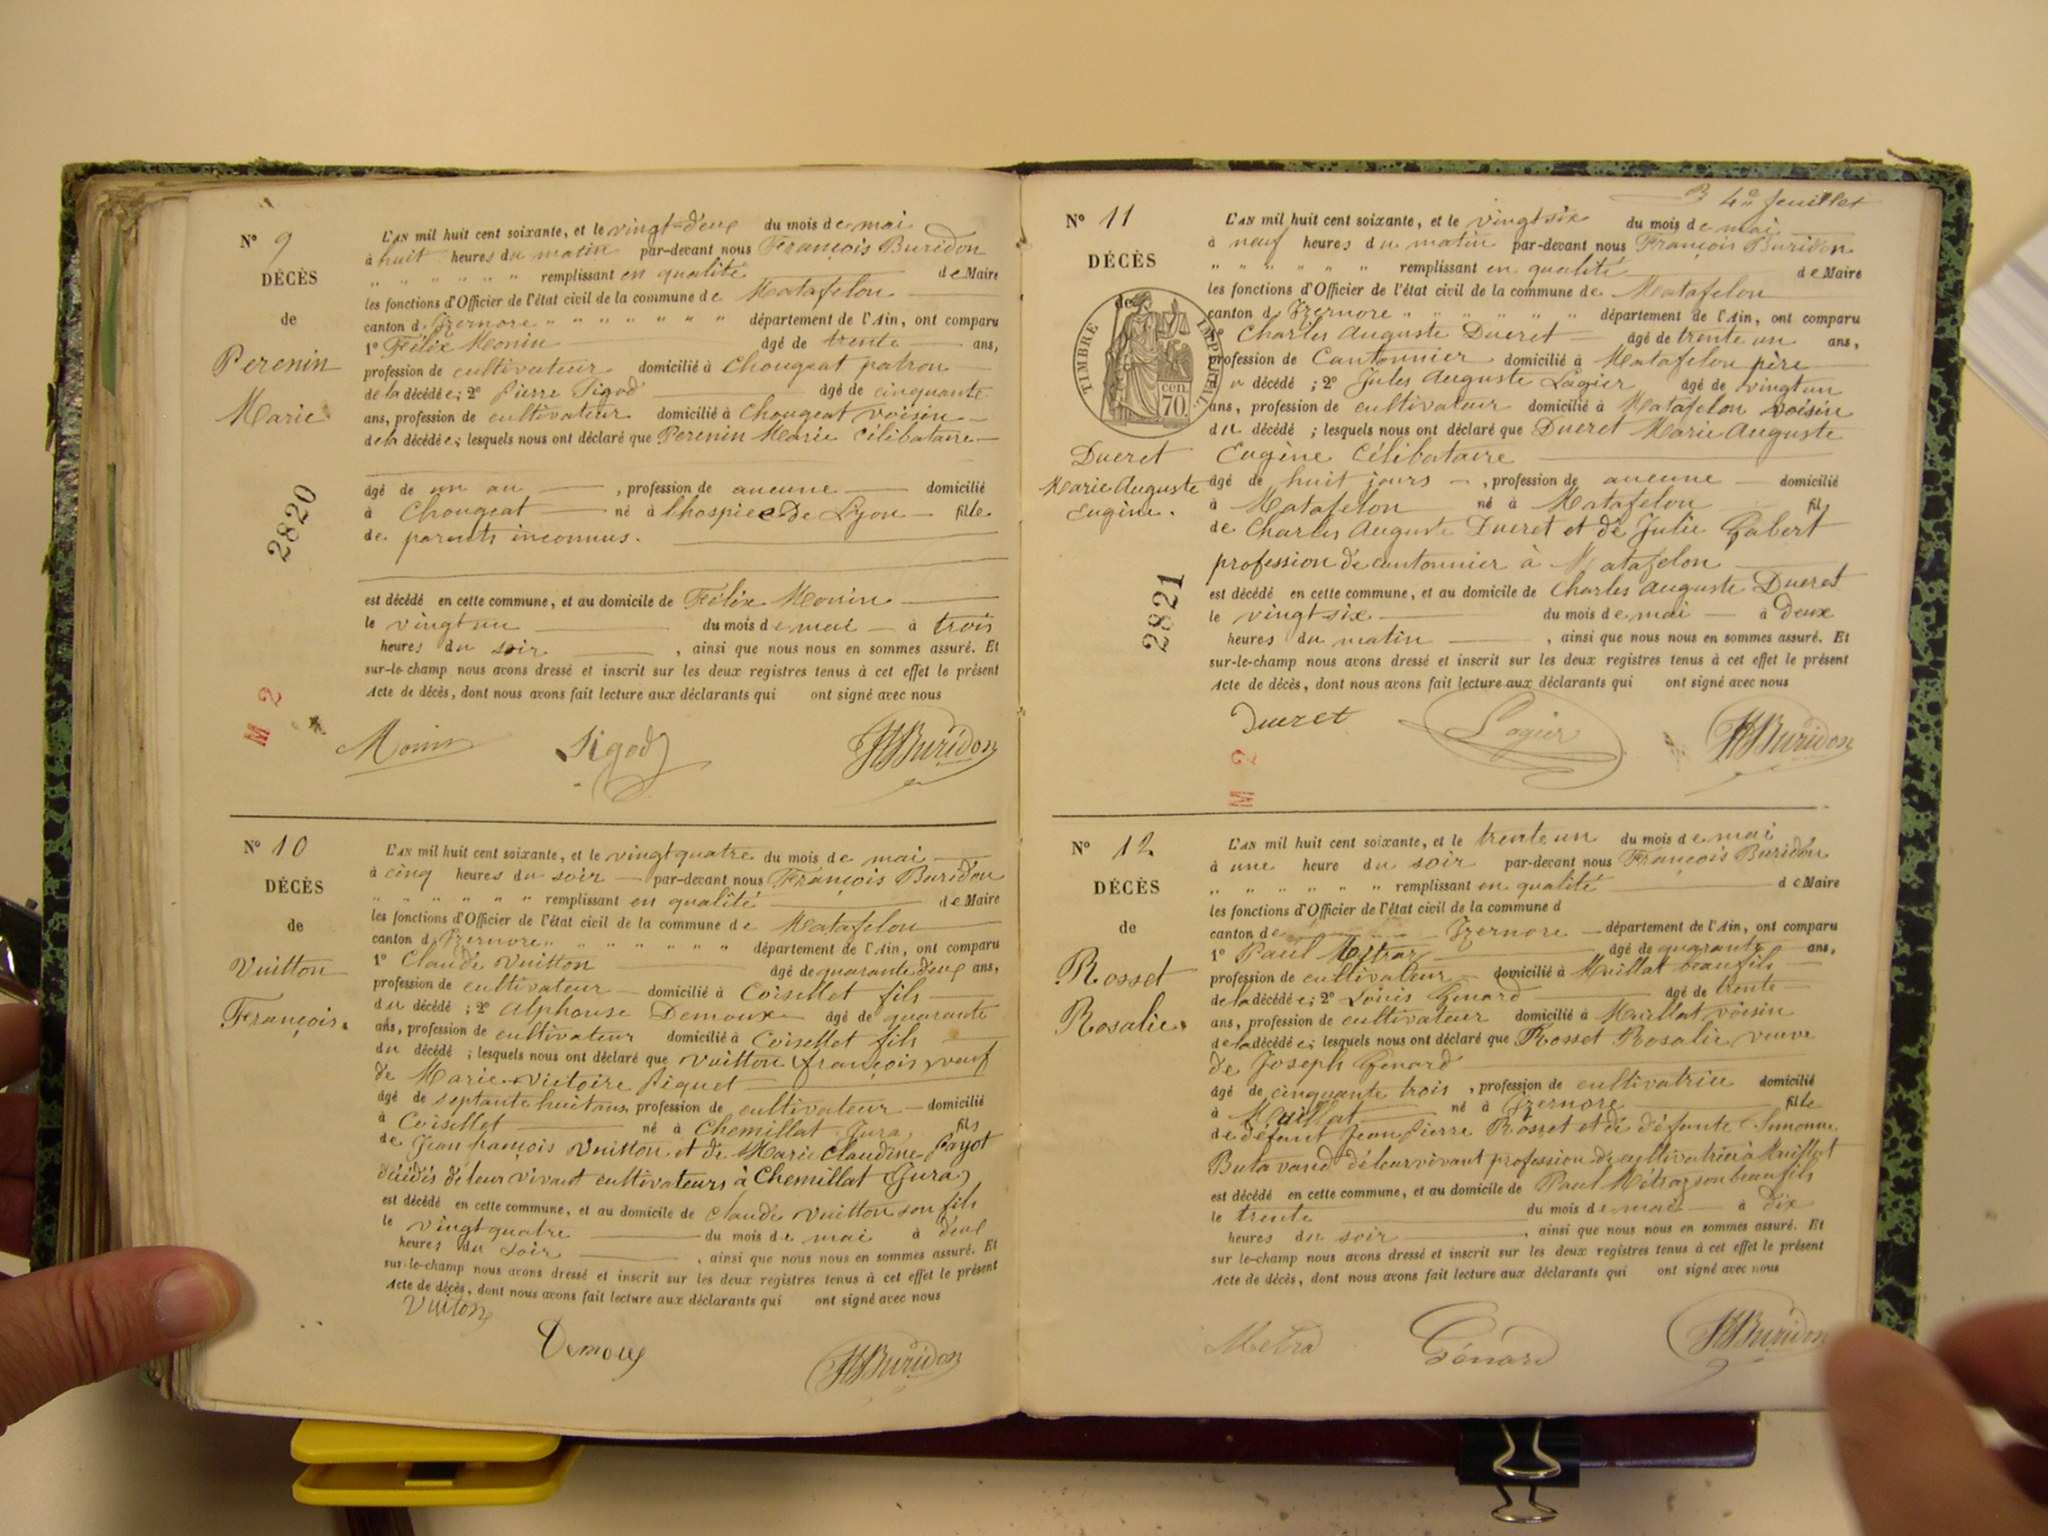 N° 9
DÉCÈS
de
Perenin
Marie
2820
M 2
L'AN mil huit cent soixante, et le vingt-deux du mois de mai
à huit heures du matin par-devant nous François Buridon
" " " " " remplissant en qualité de Maire
les fonctions d'Officier de l'état civil de la commune de Matafelon
canton d'Izernore " " " " " " " département de l'Ain, ont comparu
1° Félix Monin âgé de trente ans,
profession de cultivateur domicilié à Chougeat patron
de la décédée; 2° Pierre Sigod âgé de cinquante
ans, profession de cultivateur domicilié à Chougeat voisin
de la décédée; lesquels nous ont déclaré que Perenin Marie célibataire
âgé de un an , profession de aucune domicilié
à Chougeat né à l'hospice de Lyon fille
de parents inconnus.
est décédé en cette commune, et au domicile de Félix Monin
le vingt un du mois de mai à trois
heures du soir , ainsi que nous nous en sommes assuré. Et
sur-le-champ nous avons dressé et inscrit sur les deux registres tenus à cet effet le présent
Acte de décès, dont nous avons fait lecture aux déclarants qui ont signé avec nous
Monin Sigod Buridon
N° 10
DÉCÈS
de
Vuitton
François.
L'AN mil huit cent soixante, et le vingt quatre du mois de mai
à cinq heures du soir par-devant nous François Buridon
" " " " " " remplissant en qualité de Maire
les fonctions d'Officier de l'état civil de la commune de Matafelon
canton d'Izernore " " " " " " " département de l'Ain, ont comparu
1° Claude Vuitton âgé de quarante deux ans,
profession de cultivateur domicilié à Coisellet fils
du décédé ; 2° Alphonse Demoux âgé de quarante
ans, profession de cultivateur domicilié à Coisellet fils
du décédé ; lesquels nous ont déclaré que Vuitton François veuf
de Marie Victoire Piquet
âgé de septante huit ans, profession de cultivateur domicilié
à Coisellet né à Chemillat Jura, fils
de Jean françois Vuitton et de Marie Claudine Payot
décédés de leur vivant cultivateurs à Chemillat (Jura)
est décédé en cette commune, et au domicile de Claude Vuitton son fils
le vingt quatre du mois de mai à deux
heures du soir , ainsi que nous nous en sommes assuré. Et
sur-le-champ nous avons dressé et inscrit sur les deux registres tenus à cet effet le présent
Acte de décès, dont nous avons fait lecture aux déclarants qui ont signé avec nous
Vuiton
Demoux Buridon
3 4e feuillet
N° 11
DÉCÈS
de
TIMBRE IMPÉRIAL
cen. 70
Ducret
Marie Auguste
Eugène.
2821
M 2
L'AN mil huit cent soixante, et le vingt six du mois de mai
à neuf heures du matin par-devant nous François Buridon
" " " " " " remplissant en qualité de Maire
les fonctions d'Officier de l'état civil de la commune de Matafelon
canton d'Izernore " " " " " " département de l'Ain, ont comparu
1° Charles Auguste Ducret âgé de trente un ans,
profession de Cantonnier domicilié à Matafelon père
du décédé ; 2° Jules Auguste Lagier âgé de vingt un
ans, profession de cultivateur domicilié à Matafelon voisin
du décédé ; lesquels nous ont déclaré que Ducret Marie Auguste
Eugène célibataire
âgé de huit jours , profession de aucune domicilié
à Matafelon né à Matafelon fil
de Charles Auguste Ducret et de Julie Gabert
profession de cantonnier à Matafelon
est décédé en cette commune, et au domicile de Charles Auguste Ducret
le vingt six du mois de mai à deux
heures du matin , ainsi que nous nous en sommes assuré. Et
sur-le-champ nous avons dressé et inscrit sur les deux registres tenus à cet effet le présent
Acte de décès, dont nous avons fait lecture aux déclarants qui ont signé avec nous
Ducret Lagier Buridon
N° 12
DÉCÈS
de
Rosset
Rosalie.
L'AN mil huit cent soixante, et le trente un du mois de mai
à une heure du soir par-devant nous François Buridon
" " " " " " remplissant en qualité de Maire
les fonctions d'Officier de l'état civil de la commune d
canton de Izernore département de l'Ain, ont comparu
1° Paul âgé de quarante ans,
profession de cultivateur domicilié à Maillat beau fils
de la décédée; 2° Louis Genard âgé de trente
ans, profession de cultivateur domicilié à Maillat voisin
de la décédée; lesquels nous ont déclaré que Rosset Rosalie veuve
de Joseph Genard
âgé de cinquante trois , profession de cultivatrice domicilié
à Maillat né à Izernore fille
de défunt Jean Pierre Rosset et de défunte
Butavand de leur vivant profession de cultivatrice à Maillat
est décédé en cette commune, et au domicile de Paul Métraz son beau fils
le trente du mois de mai à dix
heures du soir , ainsi que nous nous en sommes assuré. Et
sur-le-champ nous avons dressé et inscrit sur les deux registres tenus à cet effet le présent
Acte de décès, dont nous avons fait lecture aux déclarants qui ont signé avec nous
Metra Génard Buridon